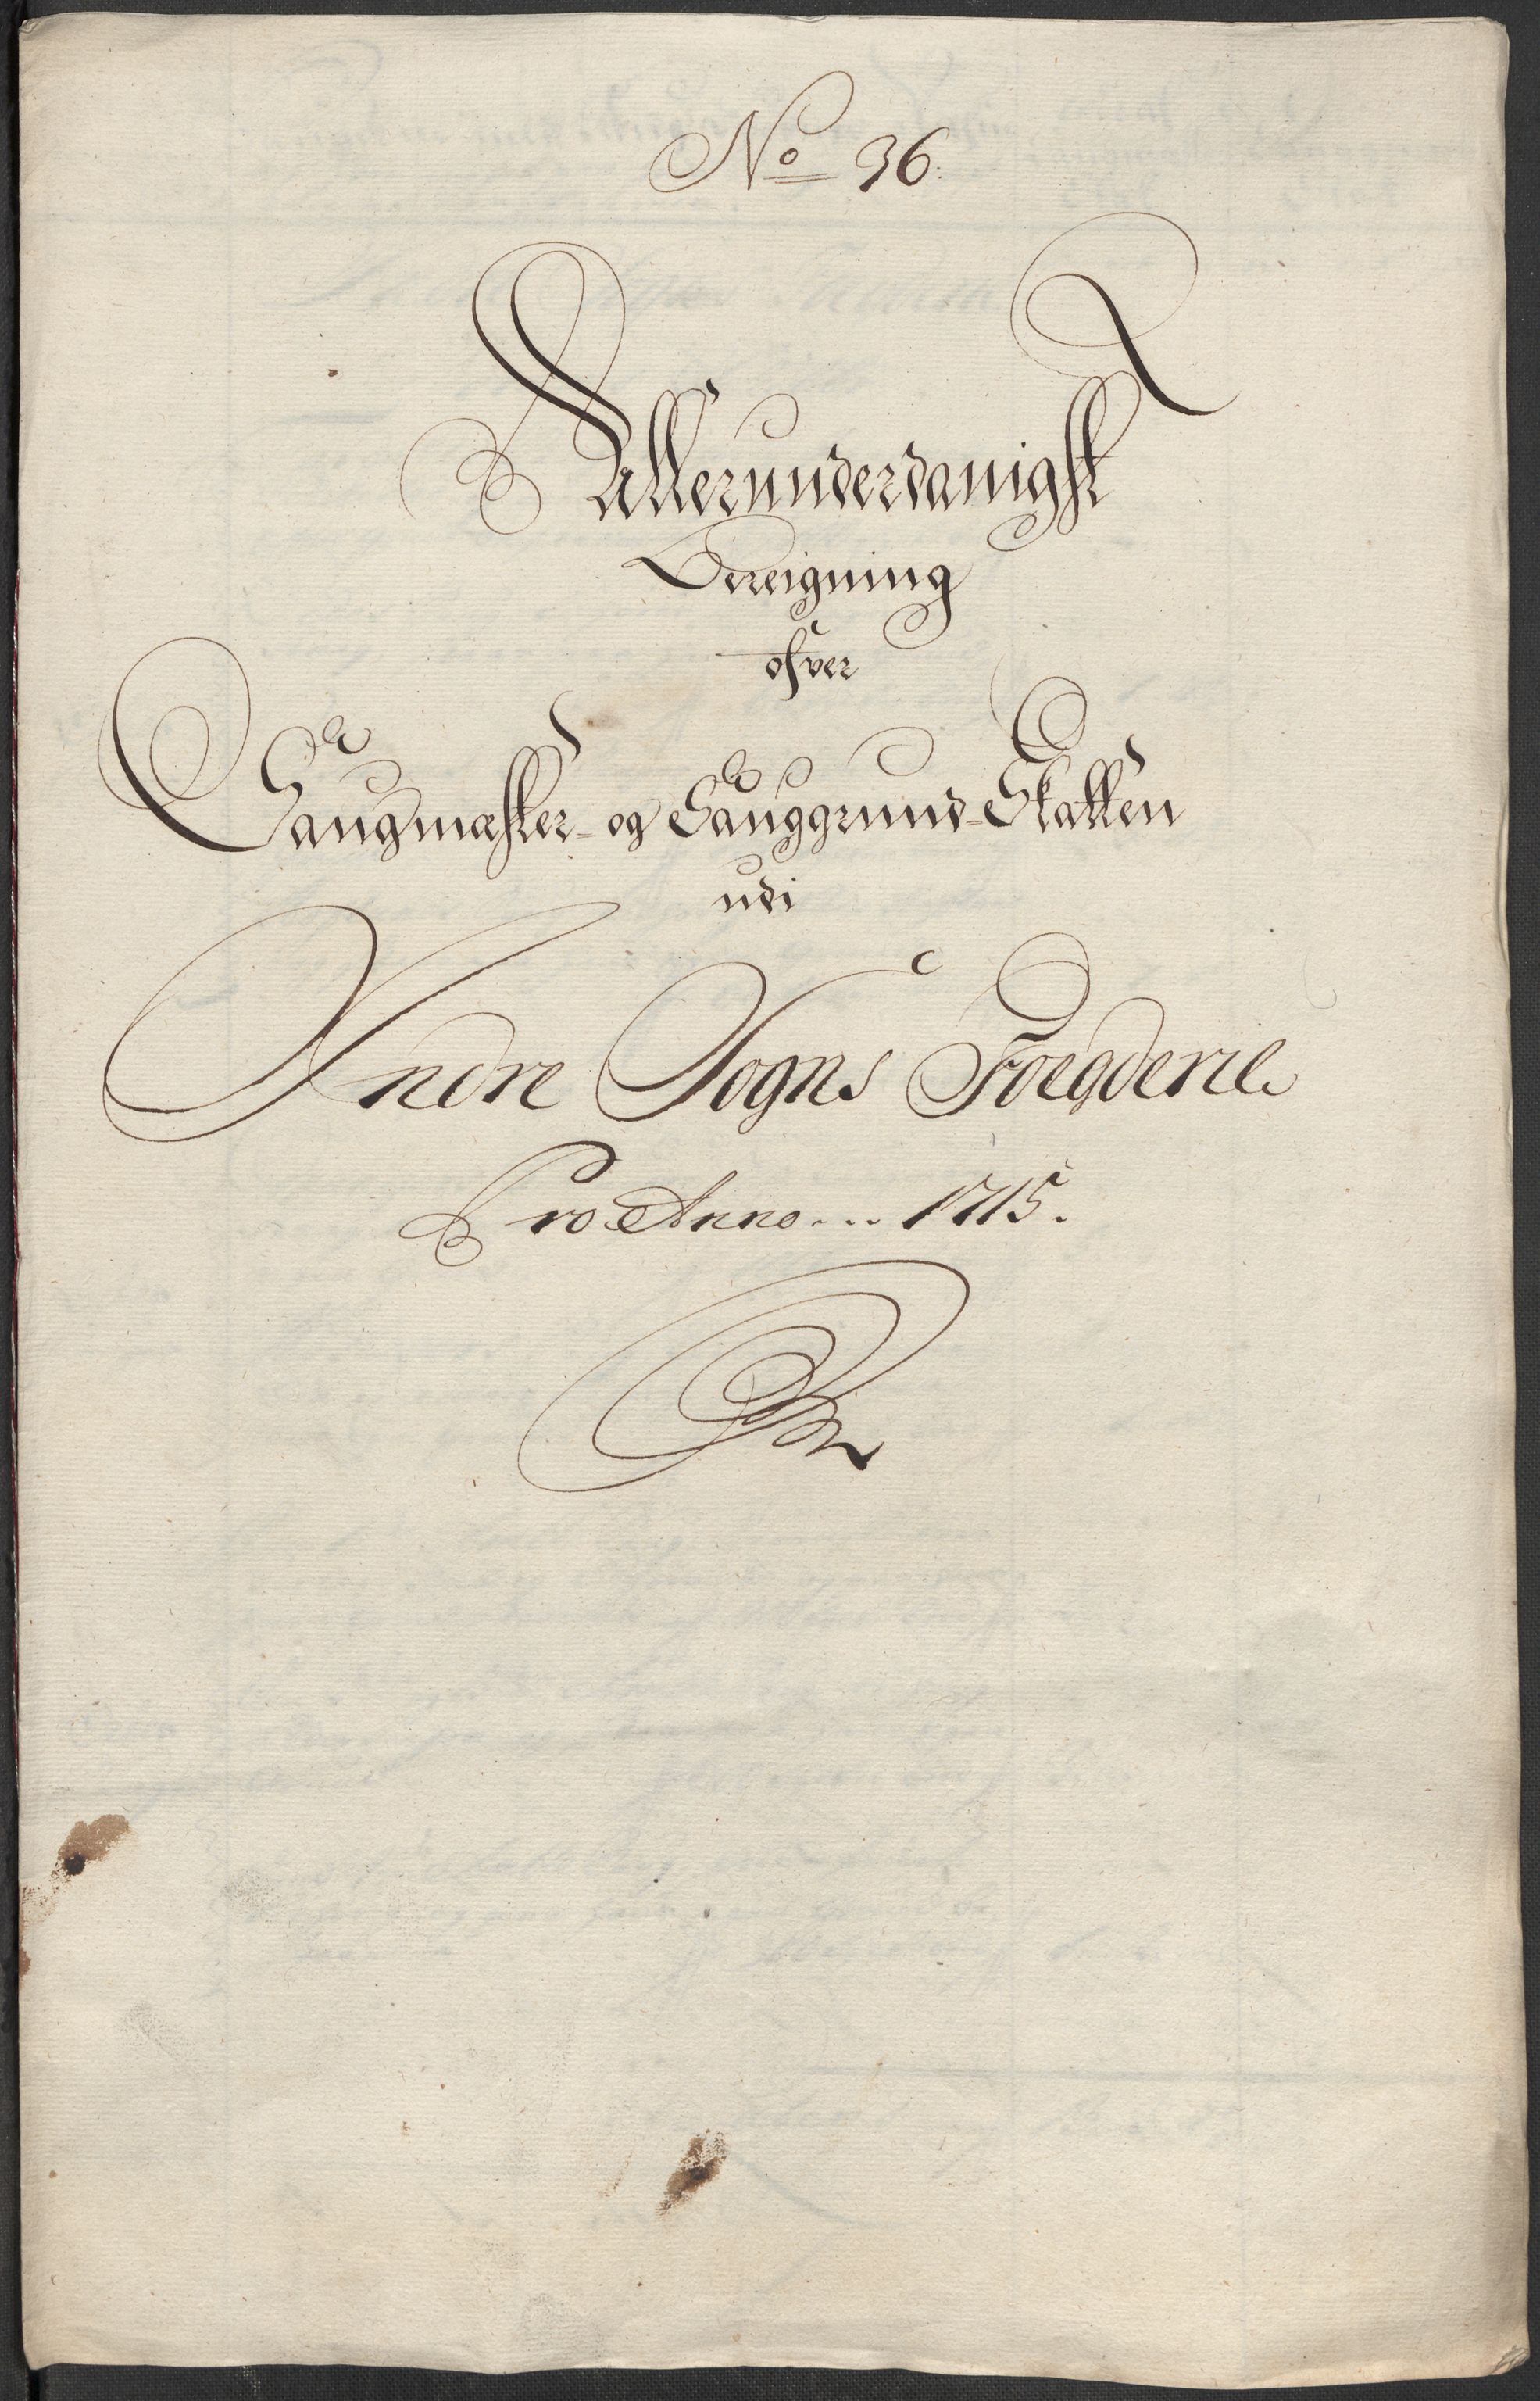 No 36.
Allerunderdanigst
Bereigning
ofver
Saugmæster- og Sauggrund-Skatten
udi
Indre Sogns Foegderie
Pro Anno... 1715.